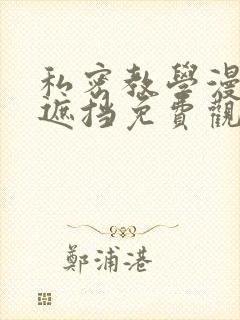 私密教學漫
遮挡免費觀
鄭浦港